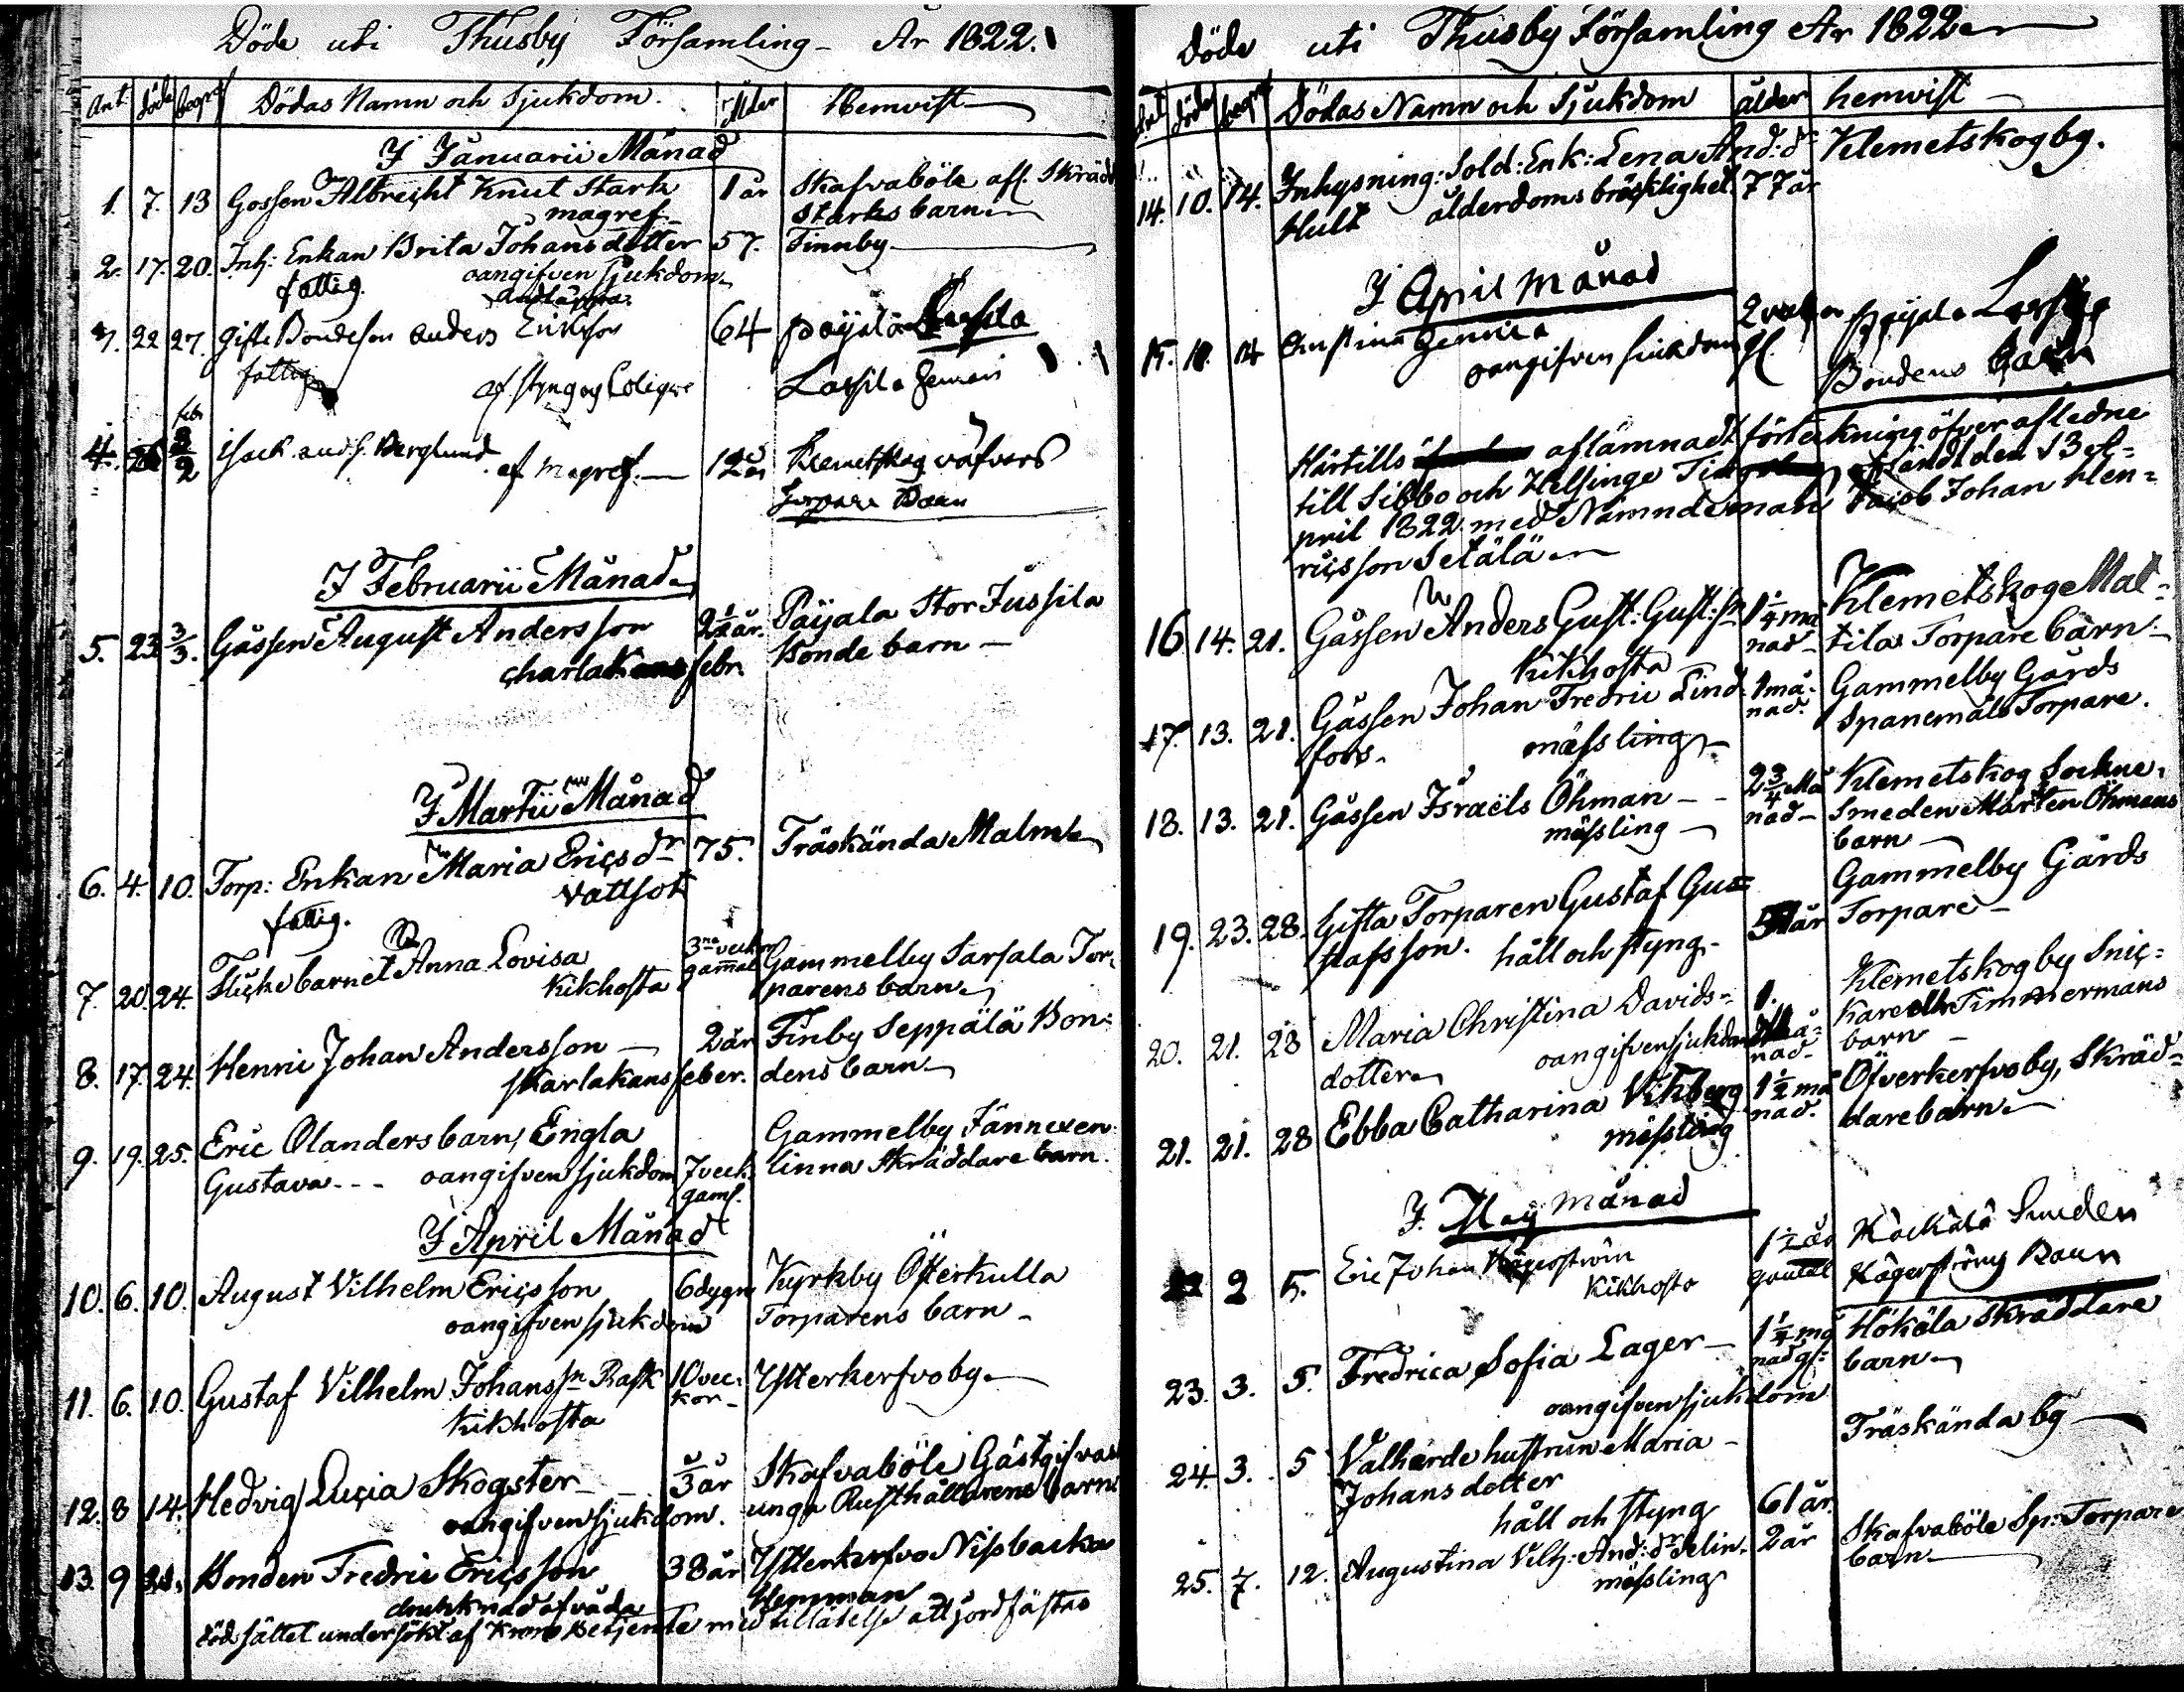 Döde uti Thusby Församling År 1822.
Ant. döde begr. Dödas Namn och Sjukdom. Ålder Hemvist
I Januarii Månad
1. 7. 13 Gossen Albrecht Knut Stark 1 år Skafvaböle afl. Skrädd
magref Starks barn
2. 17. 20. Inh: Enkan Brita Johansdotter 57. Finnby
fattig. oangifven sjukdom
Andtäppa
3. 22 27. gifte Bondeson Anders Ericsson 64 Payala
fattig af styng og Colique Lassila hemman
febr
4. 2/2 Isack And:s. Berglund af magref. 12 år Klemetskog väfvars
Torpare Barn
I Februarii Månad
5. 23 3/3. Gåssen August Andersson 2½ år. Payala Stor Jussila
charlakans febr. Bonde barn
I Martii Månad
6. 4. 10. Torp: Enkan Maria Ericsdr 75. Träskända Malm
fattig. Vattsot
7. 20. 24. Flicke barnet Anna Lovisa 3ne veckor Gammelby Sarsala Tor-
Kikhosta gammal parens barn
8. 17. 24. Henric Johan Andersson 2 år Finby Seppälä Bon-
skarlakans feber. dens barn
9. 19. 25. Eric Olanders barn, Engla Gammelby Jännexen
Gustava - - - oangifven sjukdom 7 veck. linna Skräddare barn.
gaml.
I April Månad
10. 6. 10. August Vilhelm Ericsson 6 dygn Kyrkby Österkulla
oangifven sjukdom Torparens barn
11. 6. 10. Gustaf Vilhelm Johanssn Rask 10 vec- Ytterkerfvoby
Kikhosta kor
12. 8 14. Hedvig Lucia Skogster 3 år Skafvaböle Gästgifvar
oangifven sjukdom. unga Rusthållarens barn
13. 9 21. Bonden Fredric Ericsson 38 år Ytterkerfvo Nissbacka
drunknad af våda Hemman
död sättet undersökt af Krono Betjente med tillåtelse att jordfästas
Döde uti Thusby Församling År 1822
Ant. döde begr. Dödas Namn och Sjukdom ålder hemvist
14. 10. 14. Inhysning: Sold: Enk: Lena And:dr Klemetskog by.
Hult ålderdoms bräcklighet 77 år
I April månad
15. 10. 14 Christina Henrica 2 veckor Payala Lassila
oangifven sjukdom gl. Bondens barn
Härtills aflämnadt förteckning öfver afledne
till Sibbo och Helsinge Tingslag afsändt den 13 A-
pril 1822 med Nämndeman Jacob Johan Hen-
ricsson Setälä
16 14. 21. Gåssen Anders Gust: Gust:sn 1¼ må Klemetskoge Mat-
Kikhosta nad tilas Torpare barn
17. 13. 21. Gåssen Johan Fredric Lind- 1 må- Gammelby Gårds
fors. mässling nad. Spanemåls Torpare.
18. 13. 21. Gåssen Israëls Öhman 2¾ Må Klemetskog Sockne
mässling nad Smeden Mårten Öhmans
barn
19. 23. 28. Gifta Torparen Gustaf Gus- Gammelby Gårds
stafsson. håll och styng år Torpare
20. 21. 28 Maria Christina Davids- Klemetskog by Snic-
dotter oangifven sjukdom må- kare eller Timmermans
nad barn
21. 21. 28 Ebba Catharina Vikberg 1½ må Öfverkerfvoby, Skräd-
mässling nad. dare barn
I May månad
22 2 5. Eric Johan Hägerström 1½ år Höckälä Smeden
Kikhosta gammal Hägerströms Barn
23. 3. 5. Fredrica Sofia Lager 1¼ må Hökäla skräddare
oangifven sjukdom nad gl: barn
24. 3. 5 Valherde hustrun Maria Träskända by
Johansdotter
håll och styng 61 år.
25. 7. 12. Augustina Vilh: And:dr Selin. 2 år Skafvaböle Sp: Torpare
mässling barn